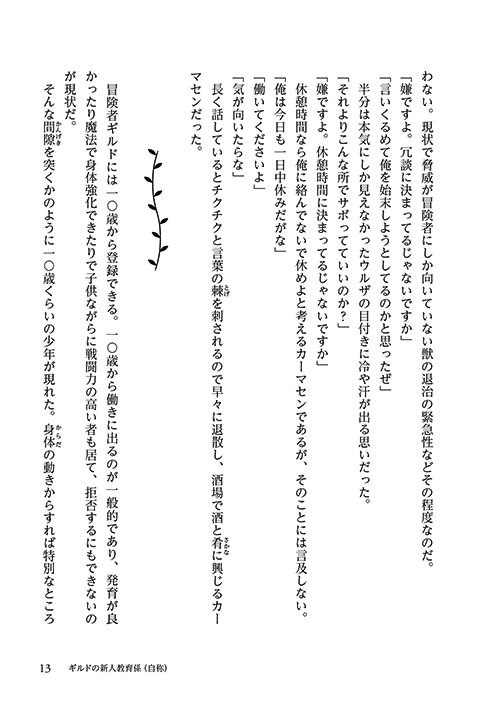 わない。現状で脅威が冒険者にしか向いていない獣の退治の緊急性などその程度なのだ。
「嫌ですよ。冗談に決まってるじゃないですか」
「言いくるめて俺を始末しようとしてるのかと思ったぜ」
半分は本気にしか見えなかったウルザの目付きに冷や汗が出る思いだった。
「それよりこんな所でサボってていいのか？」
「嫌ですよ。休憩時間に決まってるじゃないですか」
休憩時間なら俺に絡んでないで休めよと考えるカーマセンであるが、そのことには言及しない。
「俺は今日も一日中休みだがな」
「働いてくださいよ」
「気が向いたらな」
長く話しているとチクチクと言葉の棘を刺されるので早々に退散し、酒場で酒と肴に興じるカー
マセンだった。
冒険者ギルドには一〇歳から登録できる。一〇歳から働きに出るのが一般的であり、発育が良
かったり魔法で身体強化できたりで子供ながらに戦闘力の高い者も居て、拒否するにもできないの
が現状だ。
そんな間隙を突くかのように一〇歳くらいの少年が現れた。身体の動きからすれば特別なところ
13 ギルドの新人教育係（自称）